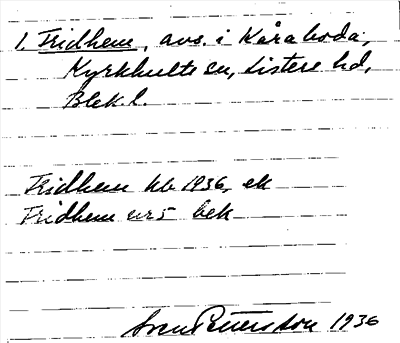 1. Fridhem, avs. i Kåraboda,
Kyrkhults sn, Listers hd,
Blek. l.
Fridhem kb 1936, ek
Fridhem urs bek
Sven Pettersson 1936